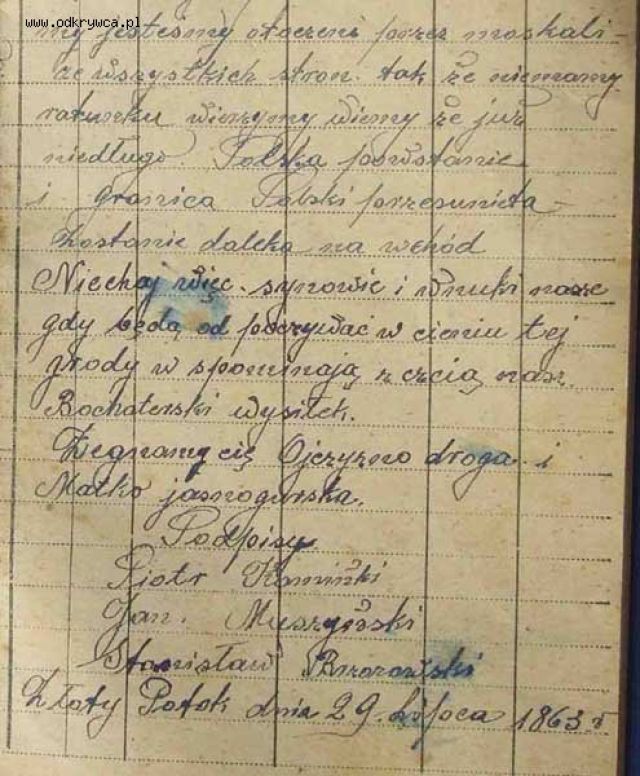 www.odkrywca.pl
my jesteśmy otoczeni przez moskali-
ze wszystkich stron. tak że niemamy
ratunku wierzymy wiemy że już
niedługo. Polska powstanie
i granica Polski przesunięta
zostanie daleka na wchód
Niechaj więc. synowie i wnuki nasze
gdy będą od poczywać w cieniu tej
w spominają z czcią nasz
Bochaterski wysiłek.
Żegnamy cię Ojczyzno droga i
Matko jasnogurska.
Podpisy
Piotr Kamiński
Jan. Muszyński
Stanisław Brzozowski
Złoty Potok dnia 29. Lipca 1863. r